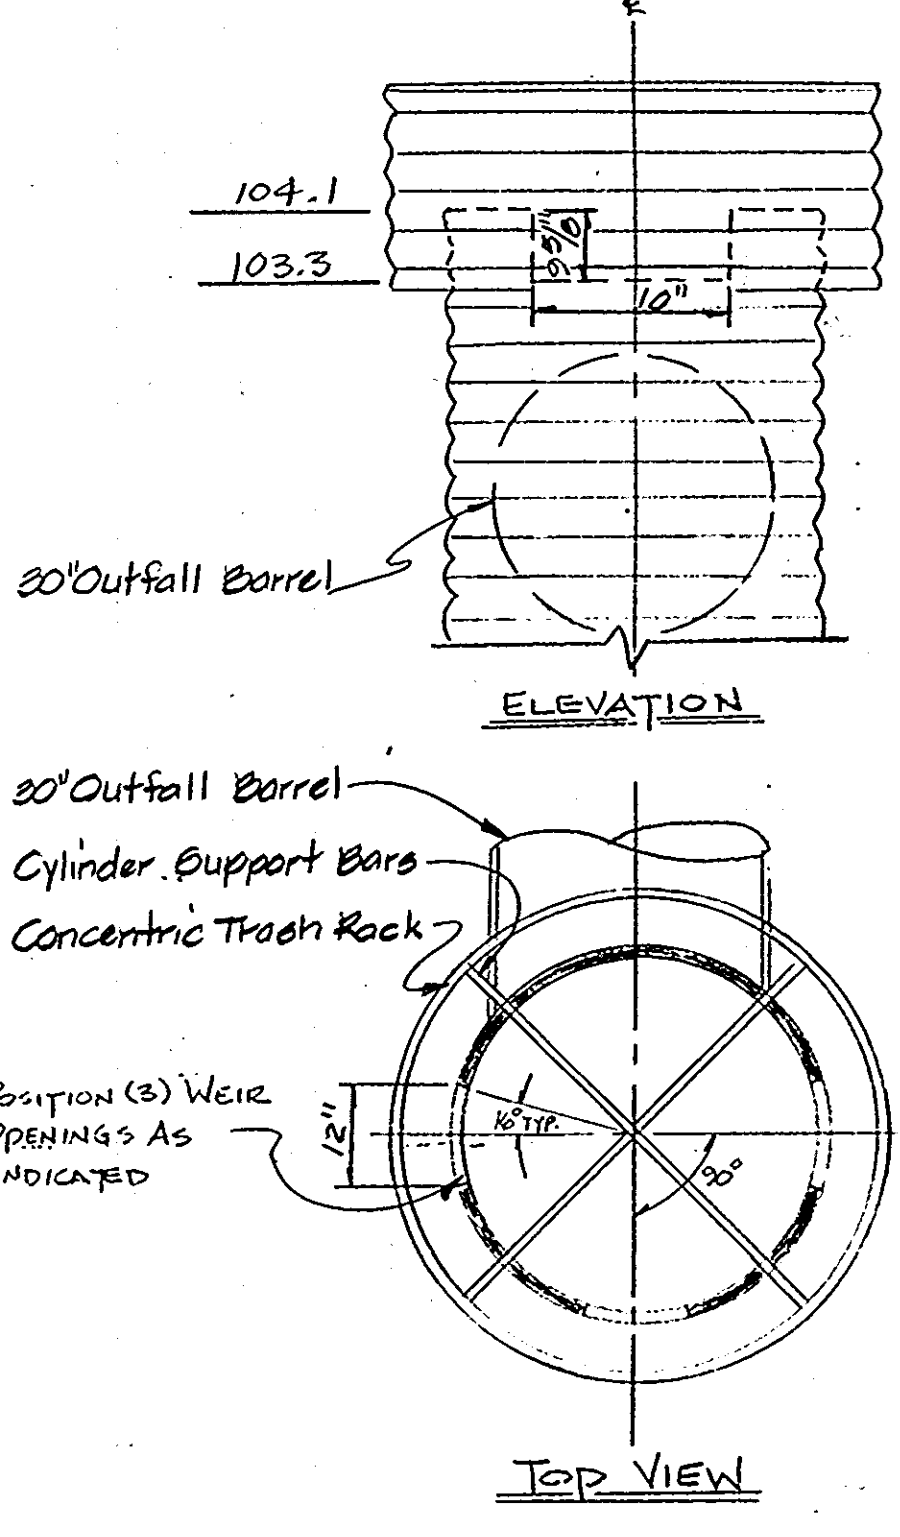 ℄
104.1
103.3
9 5/8"
10"
30" Outfall Barrel
ELEVATION
30" Outfall Barrel
Cylinder Support Bars
Concentric Trash Rack
OSITION (3) WEIR
OPENINGS AS
NDICATED
12"
16° TYP.
90°
TOP VIEW